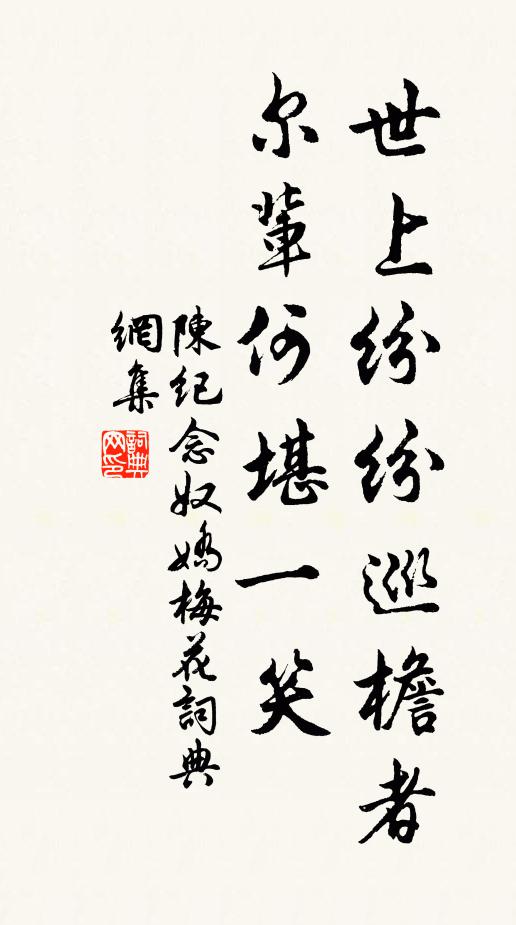 世上纷纷巡檐者
尔輩何堪一笑
陳纪念奴嬌梅花詞典
網集
詞典
网印